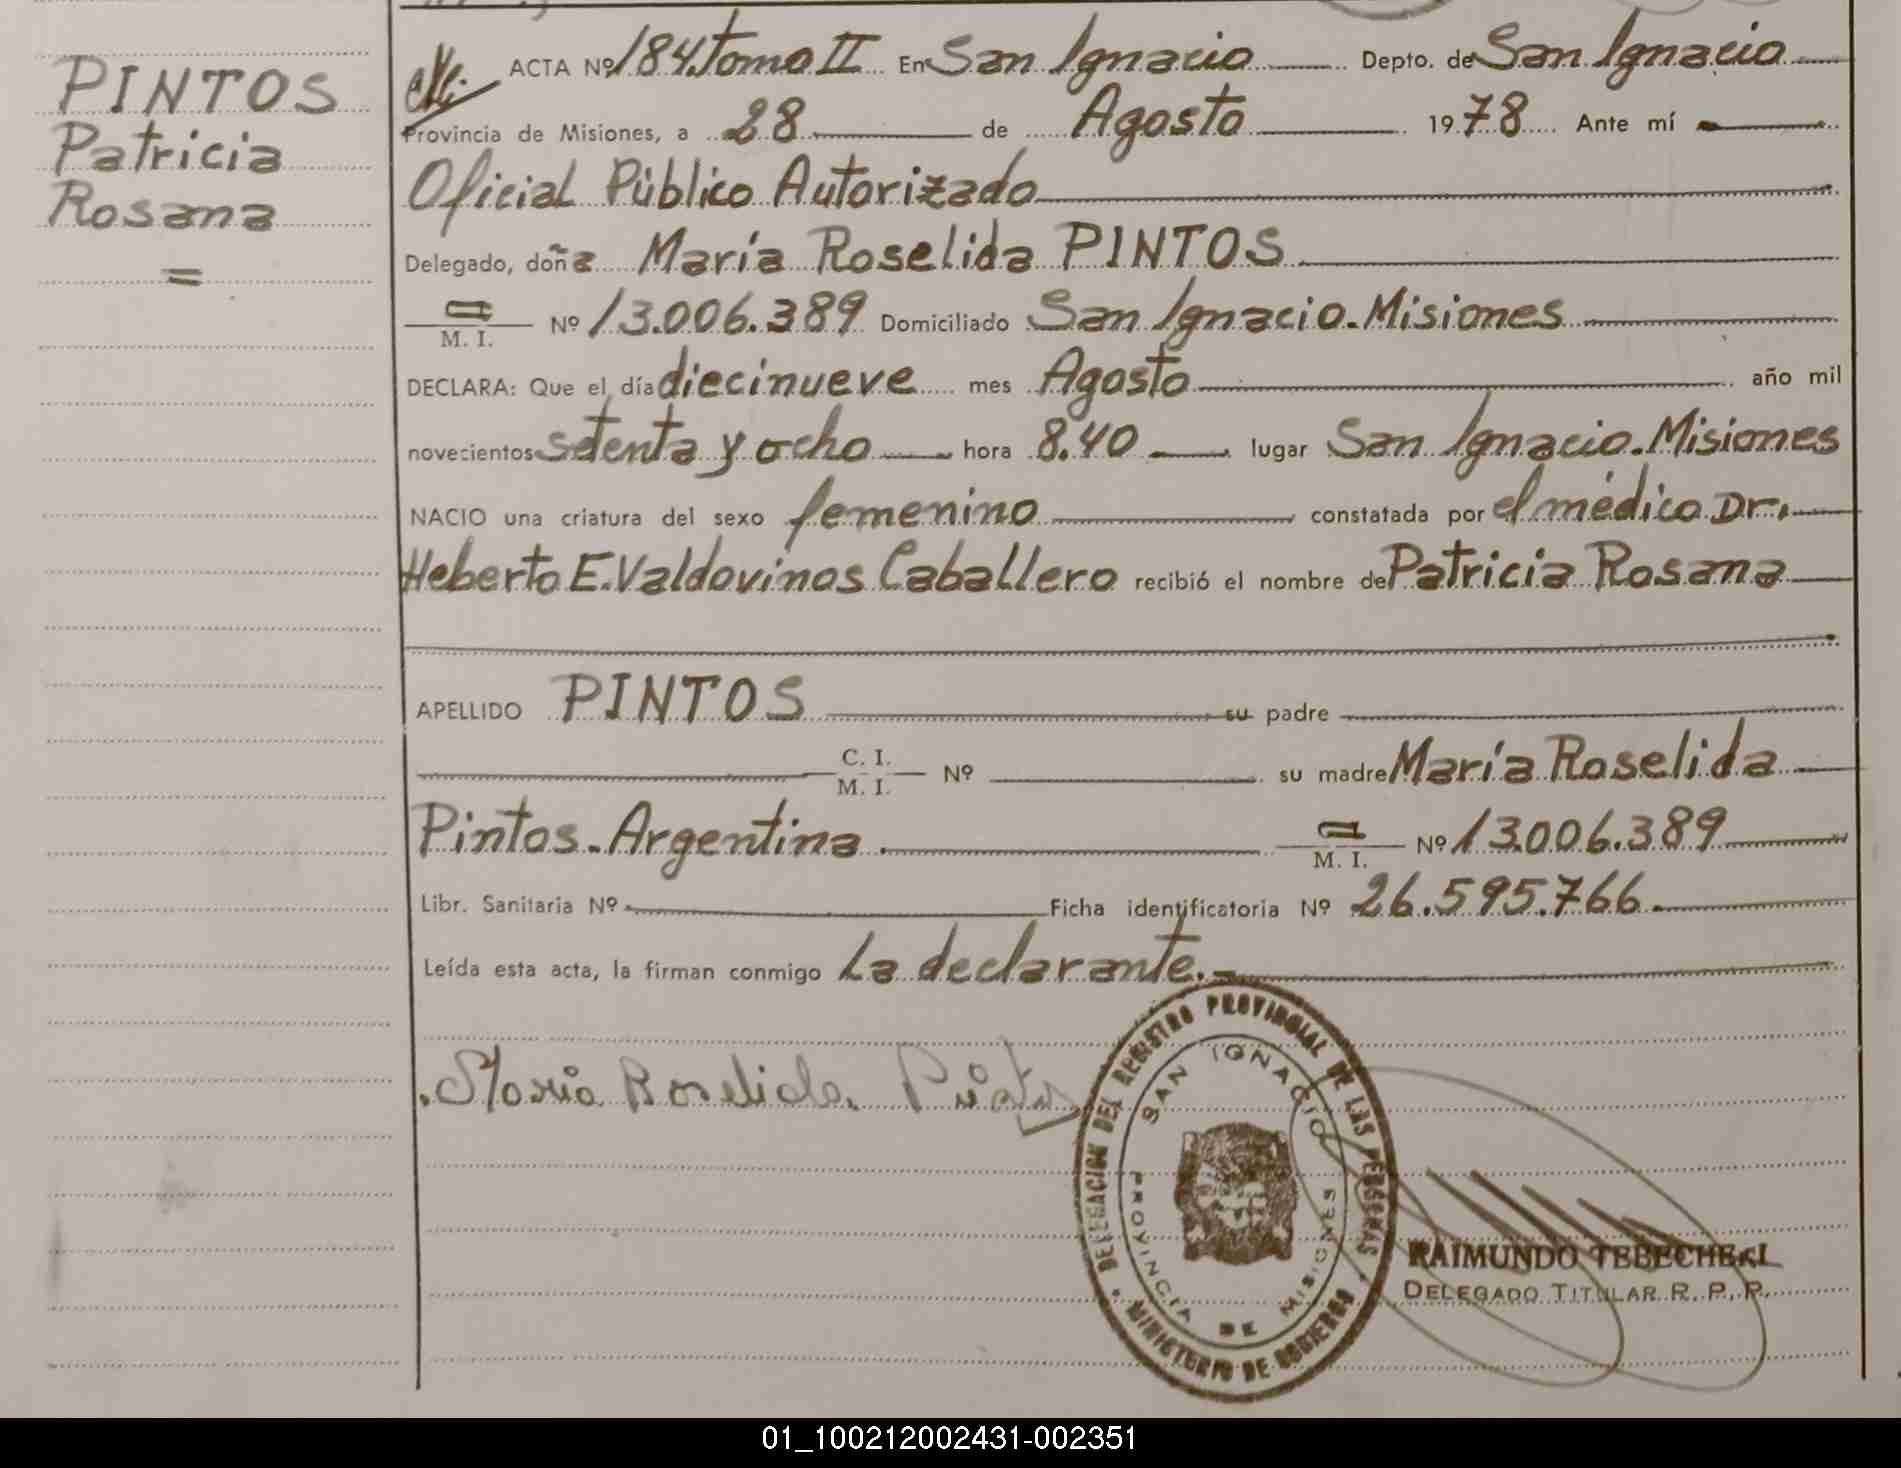 PINTOS
Patricia
Rosana
=
ACTA Nº 184 Tomo II En San Ignacio Depto. de San Ignacio
Provincia de Misiones, a 28 de Agosto 1978 Ante mí
Oficial Público Autorizado
Delegado, doña María Roselida PINTOS
CI M. I. Nº 13.006.389 Domiciliado San Ignacio. Misiones
DECLARA: Que el día diecinueve mes Agosto año mil
novecientos setenta y ocho hora 8.40 lugar San Ignacio. Misiones
NACIO una criatura del sexo femenino constatada por el médico Dr.
Heberto E. Valdovinos Caballero recibió el nombre de Patricia Rosana
APELLIDO PINTOS su padre
C. I. M. I. Nº su madre María Roselida
Pintos. Argentina. CI M. I. Nº 13.006.389
Libr. Sanitaria Nº Ficha identificatoria Nº 26.595.766.
Leída esta acta, la firman conmigo La declarante.-
María Roselida Pintos
DELEGACION DEL REGISTRO PROVINCIAL DE LAS PERSONAS
SAN IGNACIO
PROVINCIA DE MISIONES
MINISTERIO DE GOBIERNO
RAIMUNDO TEBECHERI
DELEGADO TITULAR R. P. P.
01_100212002431-002351